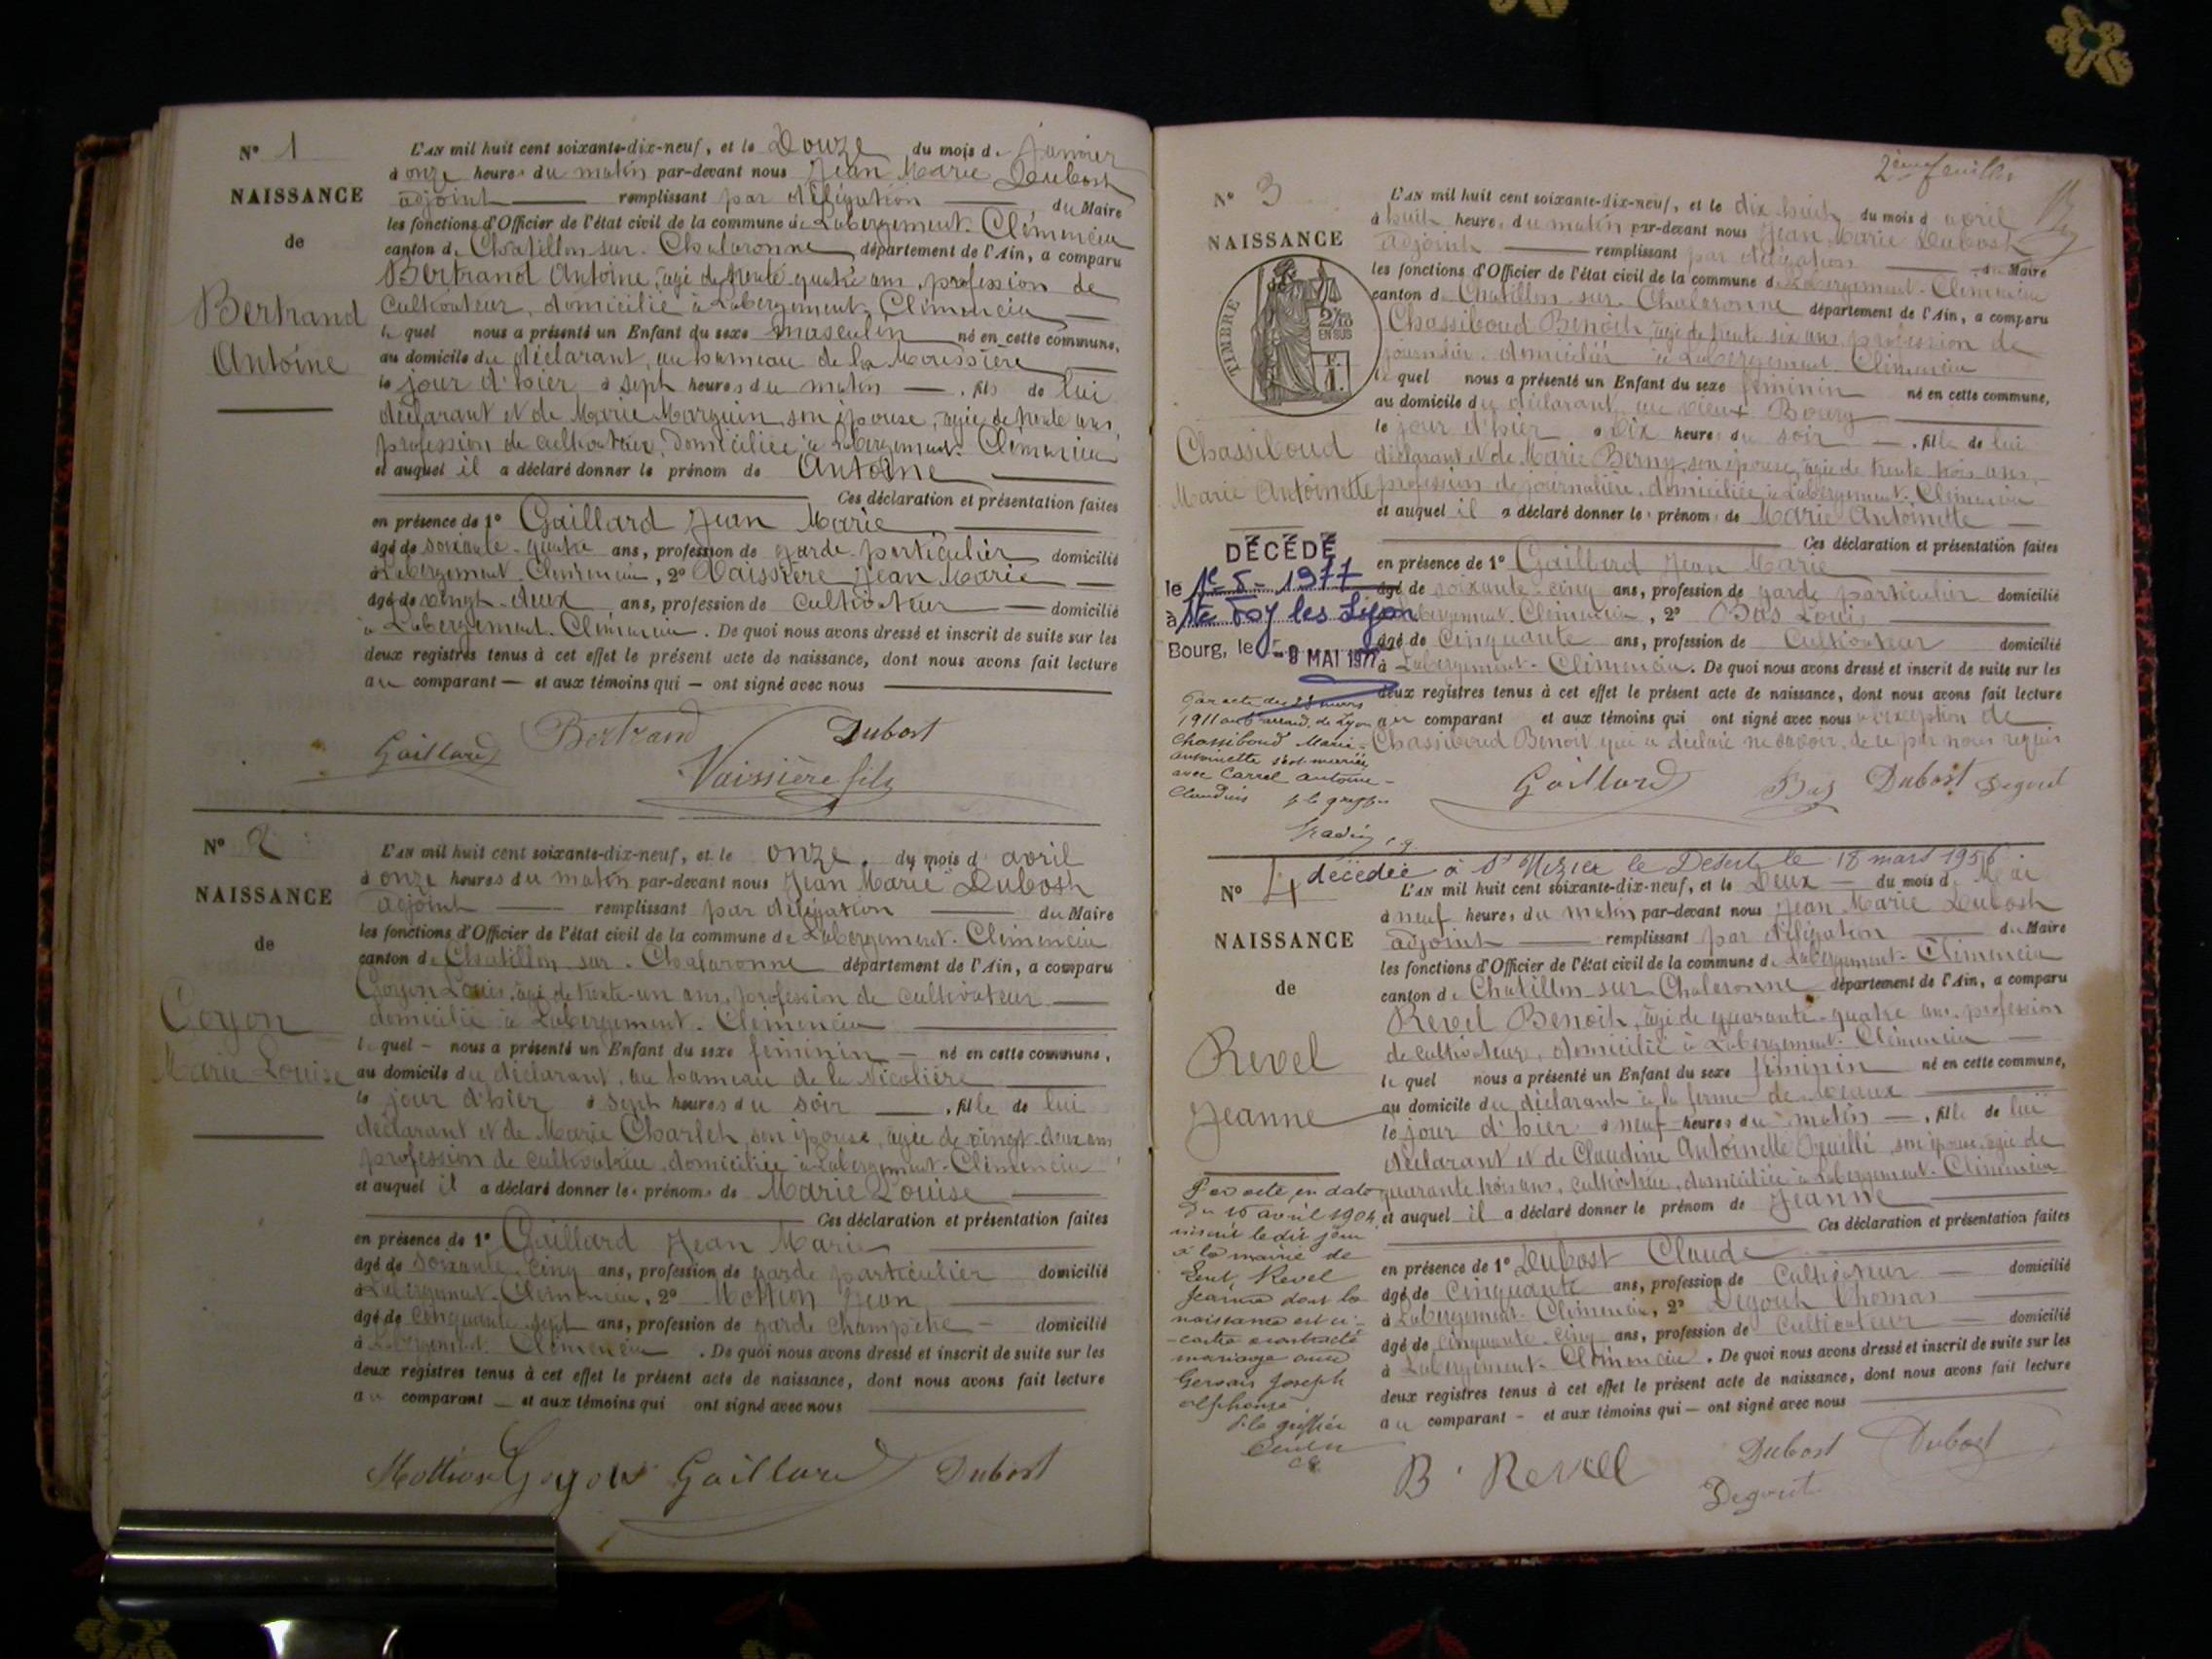 N° 1
NAISSANCE
de
Bertrand
Antoine
L'AN mil huit cent soixante-dix-neuf, et le Douze du mois d. janvier
à onze heures du matin par-devant nous Jean Marie Dubost
adjoint remplissant par délégation du Maire
les fonctions d'Officier de l'état civil de la commune de Labergement-Clémencia
canton de Chatillon sur Chalaronne département de l'Ain, a comparu
Bertrand Antoine, âgé de trente quatre ans, profession de
cultivateur, domicilié à Labergement-Clémencia
lequel nous a présenté un Enfant du sexe masculin né en cette commune,
au domicile du déclarant, au hameau de la Moussière
le jour d'hier à sept heures du matin, fils de lui
déclarant et de Marie Marguin son épouse, âgée de trente ans,
profession de cultivatrice, domiciliée à Labergement-Clémencia
et auquel il a déclaré donner le prénom de Antoine
Ces déclaration et présentation faites
en présence de 1° Gaillard Jean Marie
âgé de soixante-quatre ans, profession de garde-particulier domicilié
à Labergement-Clémencia, 2° Vaissière Jean Marie
âgé de vingt-deux ans, profession de cultivateur domicilié
à Labergement-Clémencia. De quoi nous avons dressé et inscrit de suite sur les
deux registres tenus à cet effet le présent acte de naissance, dont nous avons fait lecture
au comparant et aux témoins qui ont signé avec nous
Gaillard Bertrand Dubost
Vaissière fils
N° 2
NAISSANCE
de
Goyon
Marie Louise
L'AN mil huit cent soixante-dix-neuf, et le onze du mois d avril
à onze heures du matin par-devant nous Jean Marie Dubost
adjoint remplissant par délégation du Maire
les fonctions d'Officier de l'état civil de la commune de Labergement-Clémencia
canton de Chatillon sur Chalaronne département de l'Ain, a comparu
Goyon Louis, âgé de trente-un ans, profession de cultivateur
domicilié à Labergement-Clémencia
lequel nous a présenté un Enfant du sexe féminin né en cette commune,
au domicile du déclarant, au hameau de la Nicolière
le jour d'hier à sept heures du soir, fille de lui
déclarant et de Marie Charlet, son épouse, âgée de vingt-deux ans
profession de cultivatrice, domiciliée à Labergement-Clémencia
et auquel il a déclaré donner les prénoms de Marie Louise
Ces déclaration et présentation faites
en présence de 1° Gaillard Jean Marie
âgé de soixante-cinq ans, profession de garde particulier domicilié
à Labergement-Clémencia, 2° Mottion Jean
âgé de cinquante sept ans, profession de garde champêtre domicilié
à Labergement Clémencia. De quoi nous avons dressé et inscrit de suite sur les
deux registres tenus à cet effet le présent acte de naissance, dont nous avons fait lecture
au comparant et aux témoins qui ont signé avec nous
Mottion Goyon Gaillard Dubost
2ème feuillet
N° 3
NAISSANCE
TIMBRE
2/10
EN SUS
Chassiboud
Marie Antoinette
DÉCÉDÉ
le 1er-5-1977
à Ste Foy les Lyon
Bourg, le -9 MAI 1977
Par acte du 25 mars
1911 au arrond. de Lyon
Chassiboud Marie-
Antoinette s'est mariée
avec Carrel Antoine-
Claudius
L'AN mil huit cent soixante-dix-neuf, et le dix huit du mois d avril
à huit heures du matin par-devant nous Jean Marie Dubost
adjoint remplissant par délégation du Maire
les fonctions d'Officier de l'état civil de la commune de Labergement-Clémencia
canton de Chatillon sur Chalaronne département de l'Ain, a comparu
Chassiboud Benoit, âgé de trente six ans, profession de
journalier, domicilié à Labergement Clémencia
lequel nous a présenté un Enfant du sexe féminin né en cette commune,
au domicile du déclarant, au vieux Bourg
le jour d'hier à dix heures du soir, fille de lui
déclarant et de Marie Berny, son épouse, âgée de trente trois ans,
profession de journalière, domiciliée à Labergement-Clémencia
et auquel il a déclaré donner les prénoms de Marie Antoinette
Ces déclaration et présentation faites
en présence de 1° Gaillard Jean Marie
âgé de soixante-cinq ans, profession de garde particulier domicilié
Labergement-Clémencia, 2° Bas Louis
âgé de cinquante ans, profession de cultivateur domicilié
à Labergement-Clémencia. De quoi nous avons dressé et inscrit de suite sur les
deux registres tenus à cet effet le présent acte de naissance, dont nous avons fait lecture
au comparant et aux témoins qui ont signé avec nous à l'exception de
Chassiboud Benoit qui a déclaré ne savoir, de ce par nous requis
Gaillard Bas Dubost
décédée à St Nizier le Désert le 18 mars 1956
N° 4
NAISSANCE
de
Revel
Jeanne
Par acte en date
du 16 avril 1904
inscrit ledit jour
à la mairie de
Lent, Revel
Jeanne dont la
naissance est ci-
contre a contracté
mariage avec
Gervais Joseph
Alphonse
P. le greffier
L'AN mil huit cent soixante-dix-neuf, et le Deux du mois de Mai
à neuf heures du matin par-devant nous Jean Marie Dubost
adjoint remplissant par délégation du Maire
les fonctions d'Officier de l'état civil de la commune de Labergement-Clémencia
canton de Chatillon sur Chalaronne département de l'Ain, a comparu
Revel Benoit, âgé de quarante-quatre ans, profession
de cultivateur, domicilié à Labergement Clémencia
lequel nous a présenté un Enfant du sexe féminin né en cette commune,
au domicile du déclarant à la ferme de
le jour d'hier à neuf heures du matin, fille de lui
déclarant et de Claudine Antoinette son épouse, âgée de
quarante trois ans, cultivatrice, domiciliée à Labergement-Clémencia
et auquel il a déclaré donner le prénom de Jeanne
Ces déclaration et présentation faites
en présence de 1° Dubost Claude
âgé de cinquante ans, profession de cultivateur domicilié
à Labergement-Clémencia, 2° Degout Thomas
âgé de cinquante-cinq ans, profession de cultivateur domicilié
à Labergement-Clémencia. De quoi nous avons dressé et inscrit de suite sur les
deux registres tenus à cet effet le présent acte de naissance, dont nous avons fait lecture
au comparant et aux témoins qui ont signé avec nous
B. Revel Dubost Dubost
Degout